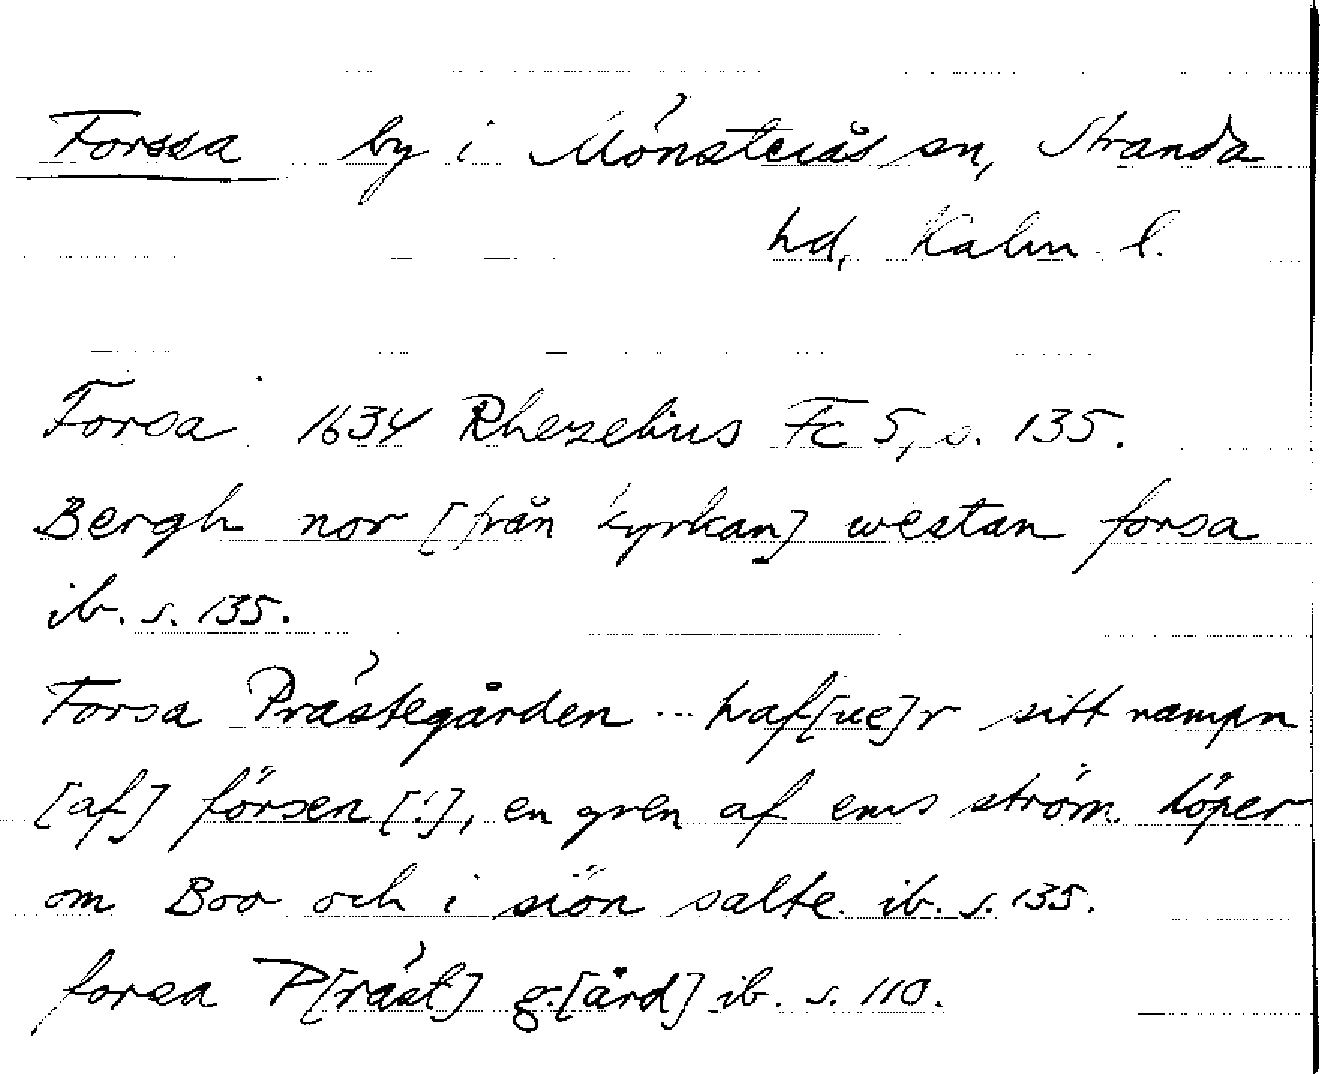 Forssa by i Mönsterås sn, Stranda
hd, Kalm l.
Forsa 1634 Rhezelius Fc 5, s. 135.
Bergh nor [från kyrkan] westan forsa
ib. s. 135.
Forsa Prästegården ... haf[ue]r sitt nampn
[af] försen [!], en gren af ems ström löper
om Boo och i siön salte. ib. s. 135.
forsa P[räst] g.[ård] ib. s. 110.